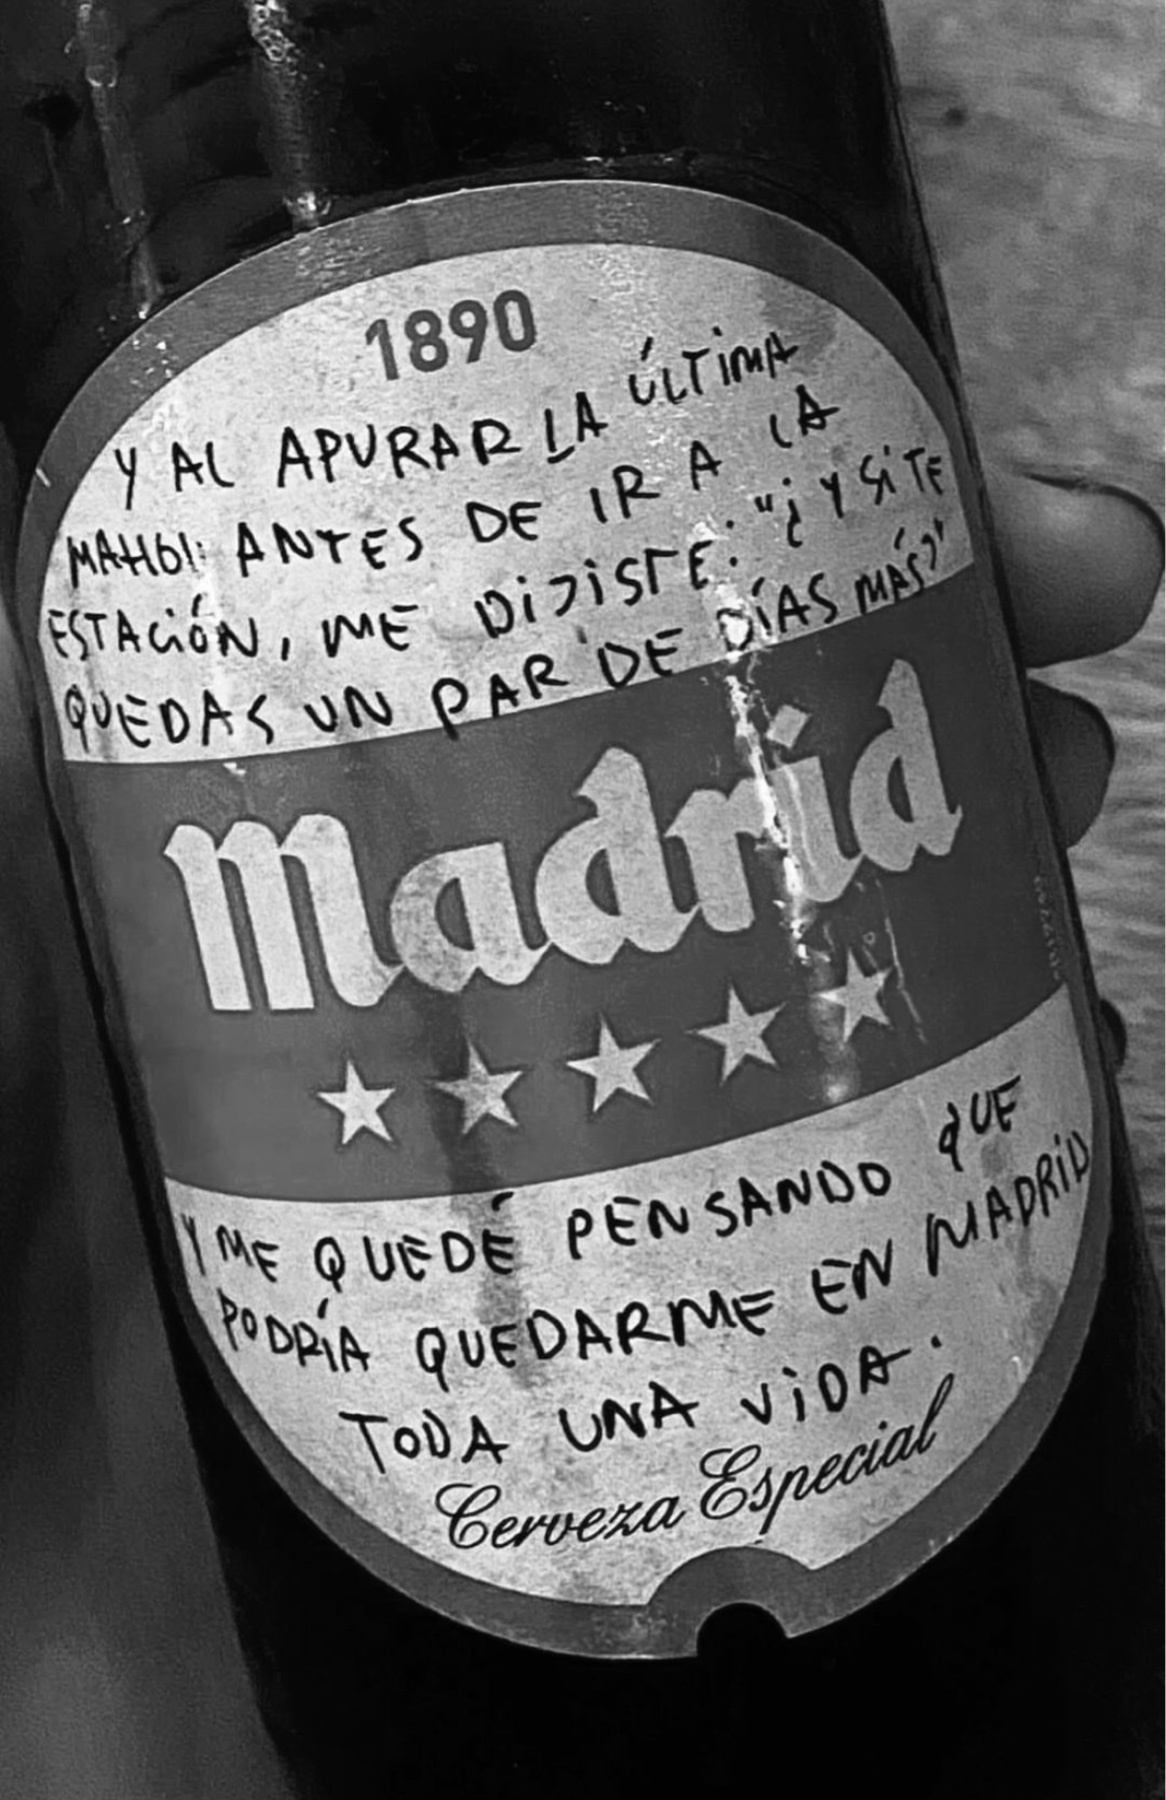 1890
Y AL APURAR LA ÚLTIMA
MAHOU ANTES DE IR A LA
ESTACIÓN, ME DIJISTE: "¿Y SI TE
QUEDAS UN PAR DE DÍAS MÁS?"
Madrid
Y ME QUEDÉ PENSANDO QUE
PODRÍA QUEDARME EN MADRID
TODA UNA VIDA.
Cerveza Especial